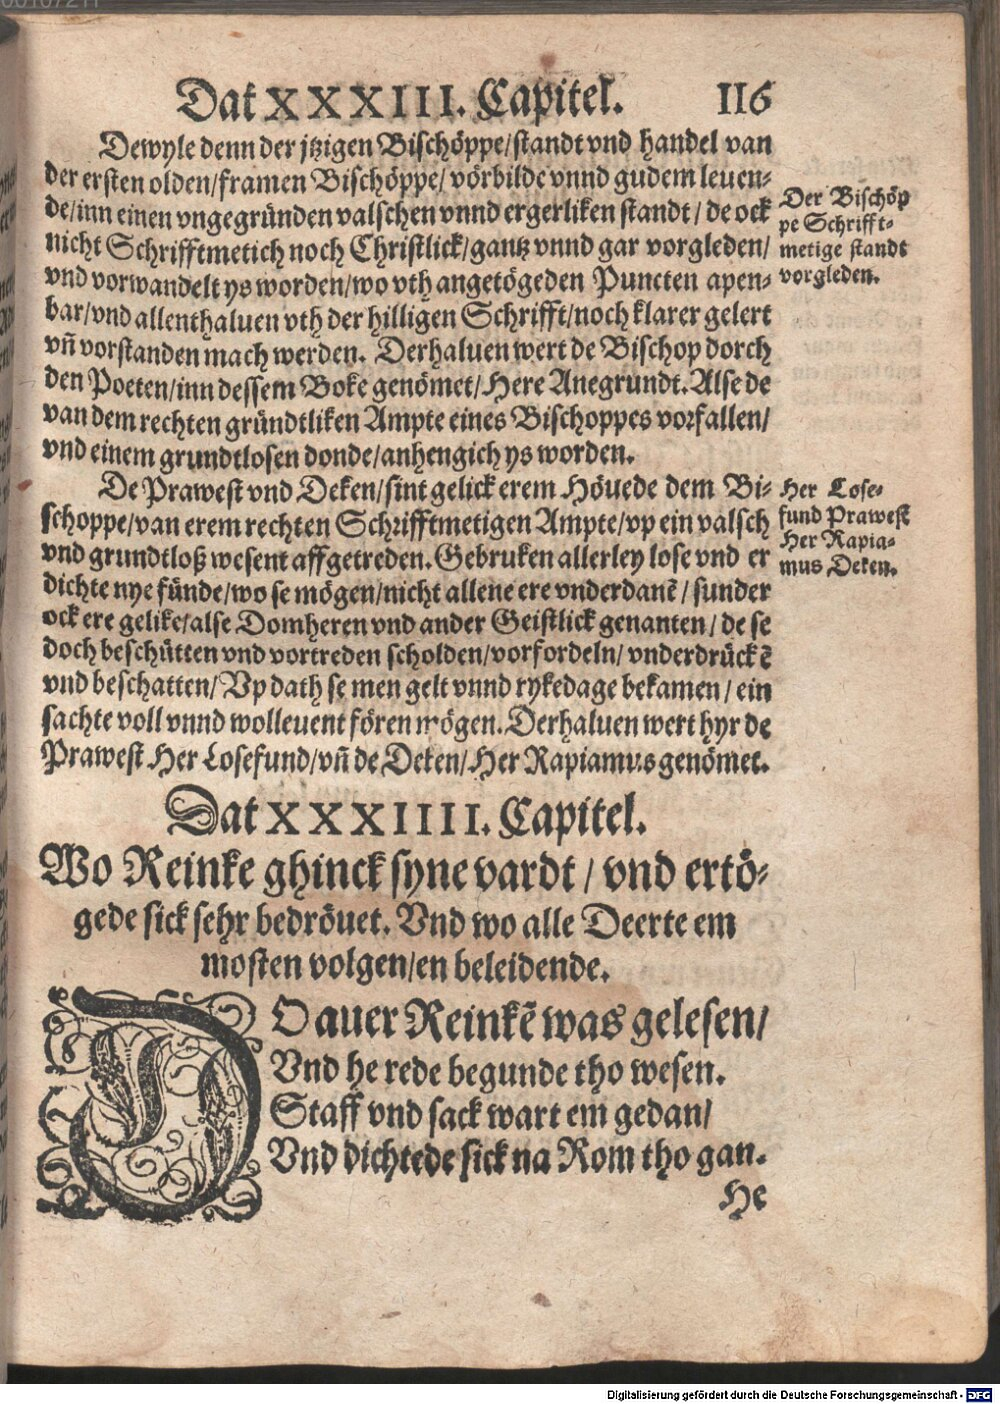 Dat XXXIII. Capitel. 116
Dewyle denn der jtzigen Bischöppe/standt vnd handel van
der ersten olden/framen Bischöppe/ vörbilde vnnd gudem leuen-
de/inn einen vngegründen valschen vnnd ergerliken standt / de ock
nicht Schrifftmetich noch Christlick/gantz vnnd gar vorgleden/
vnd vorwandelt ys worden/wo vth angetögeden Puncten apen-
bar/vnd allenthaluen vth der hilligen Schrifft/noch klarer gelert
vñ vorstanden mach werden. Derhaluen wert de Bischop dorch
den Poeten/inn dessem Boke genömet/Here Anegrundt. Alse de
van dem rechten gründtliken Ampte eines Bischoppes vorfallen/
vnd einem grundtlosen donde/anhengich ys worden.
Der Bischöp
pe Schrifft-
metige standt
vorgleden.
De Prawest vnd Deken/sint gelick erem Höuede dem Bi-
schoppe/van erem rechten Schrifftmetigen Ampte/vp ein valsch
vnd grundtloß wesent affgetreden. Gebruken allerley lose vnd er
dichte nye fünde/wo se mögen/nicht allene ere vnderdanẽ / sunder
ock ere gelike/alse Domheren vnd ander Geistlick genanten / de se
doch beschütten vnd vortreden scholden/vorfordeln/ vnderdrückẽ
vnd beschatten/ Vp dath se men gelt vnnd rykedage bekamen / ein
sachte voll vnnd wolleuent fören mögen. Derhaluen wert hyr de
Prawest Her Losefund/vñ de Deken/Her Rapiamus genömet.
Her Lose-
fund Prawest
Her Rapia-
mus Deken.
Dat XXXIIII. Capitel.
Wo Reinke ghinck syne vardt / vnd ertö-
gede sick sehr bedröuet. Vnd wo alle Deerte em
mosten volgen/en beleidende.
DO auer Reinkẽ was gelesen/
Vnd he rede begunde tho wesen.
Staff vnd sack wart em gedan/
Vnd dichtede sick na Rom tho gan.
He
Digitalisierung gefördert durch die Deutsche Forschungsgemeinschaft - DFG